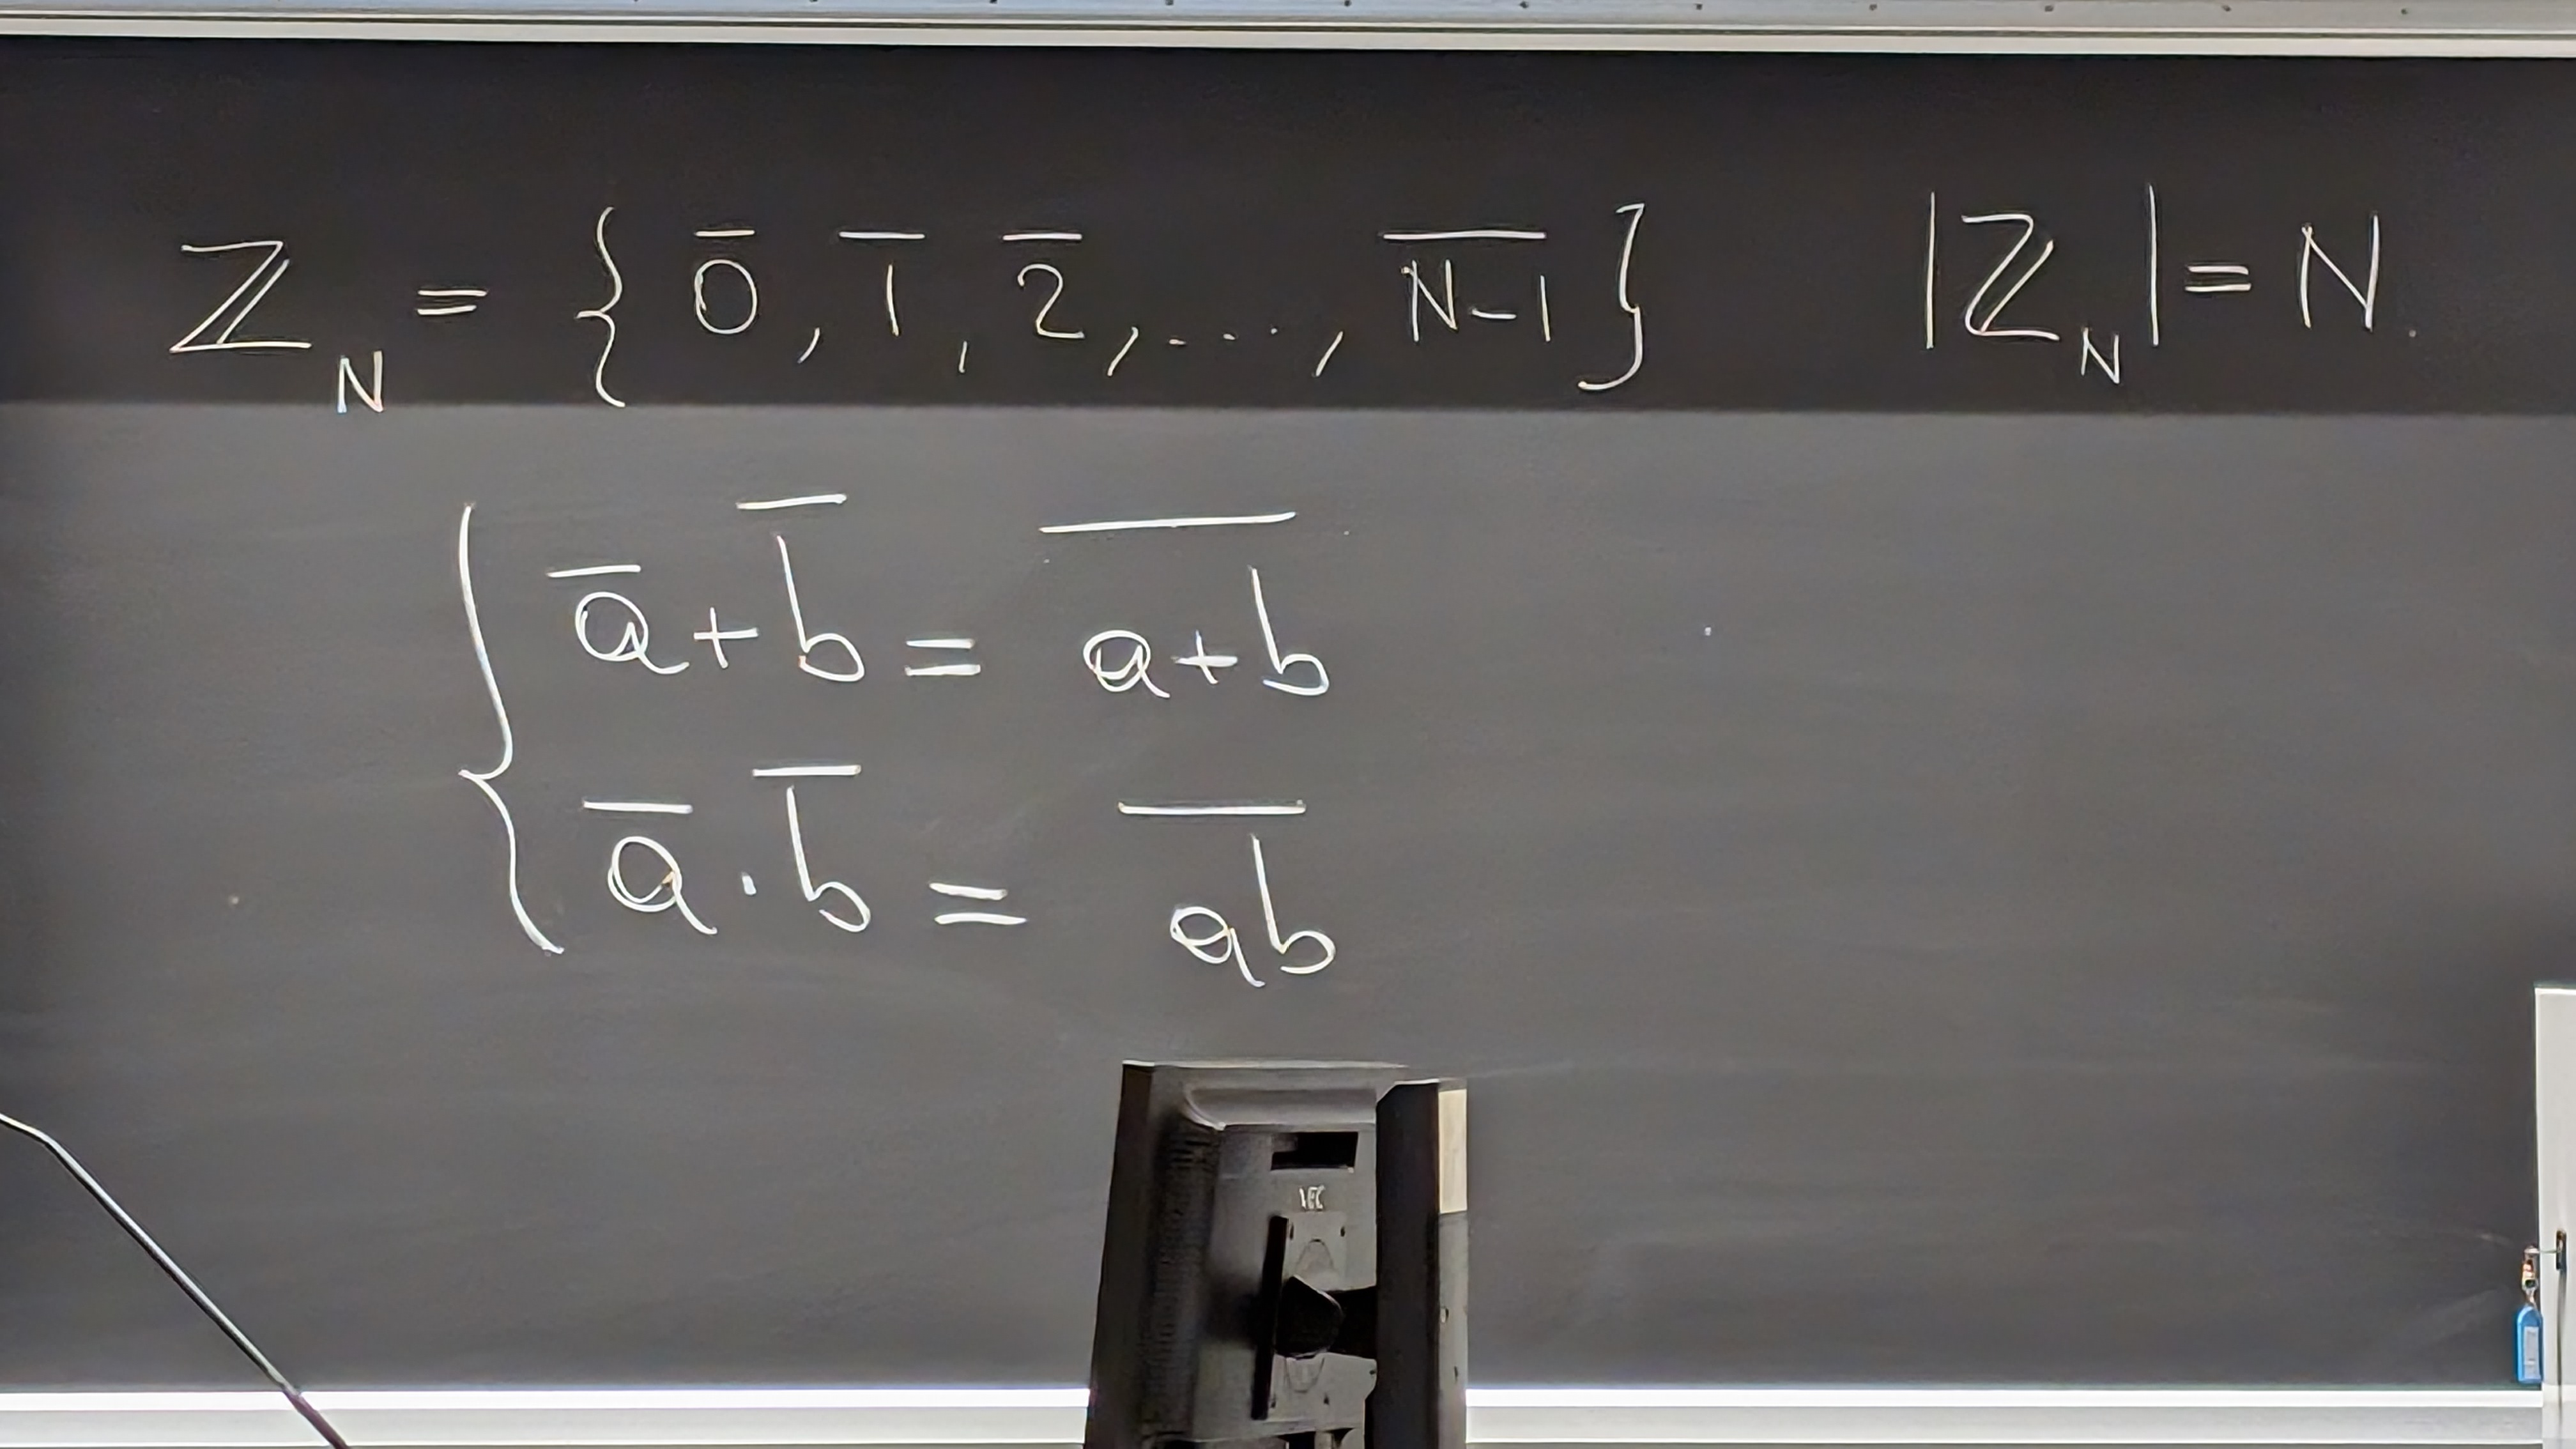 ℤ_N = { 0̅, 1̅, 2̅, ..., N̅-̅1̅ } |ℤ_N| = N.
a̅ + b̅ = a̅+̅b̅
a̅ · b̅ = a̅b̅